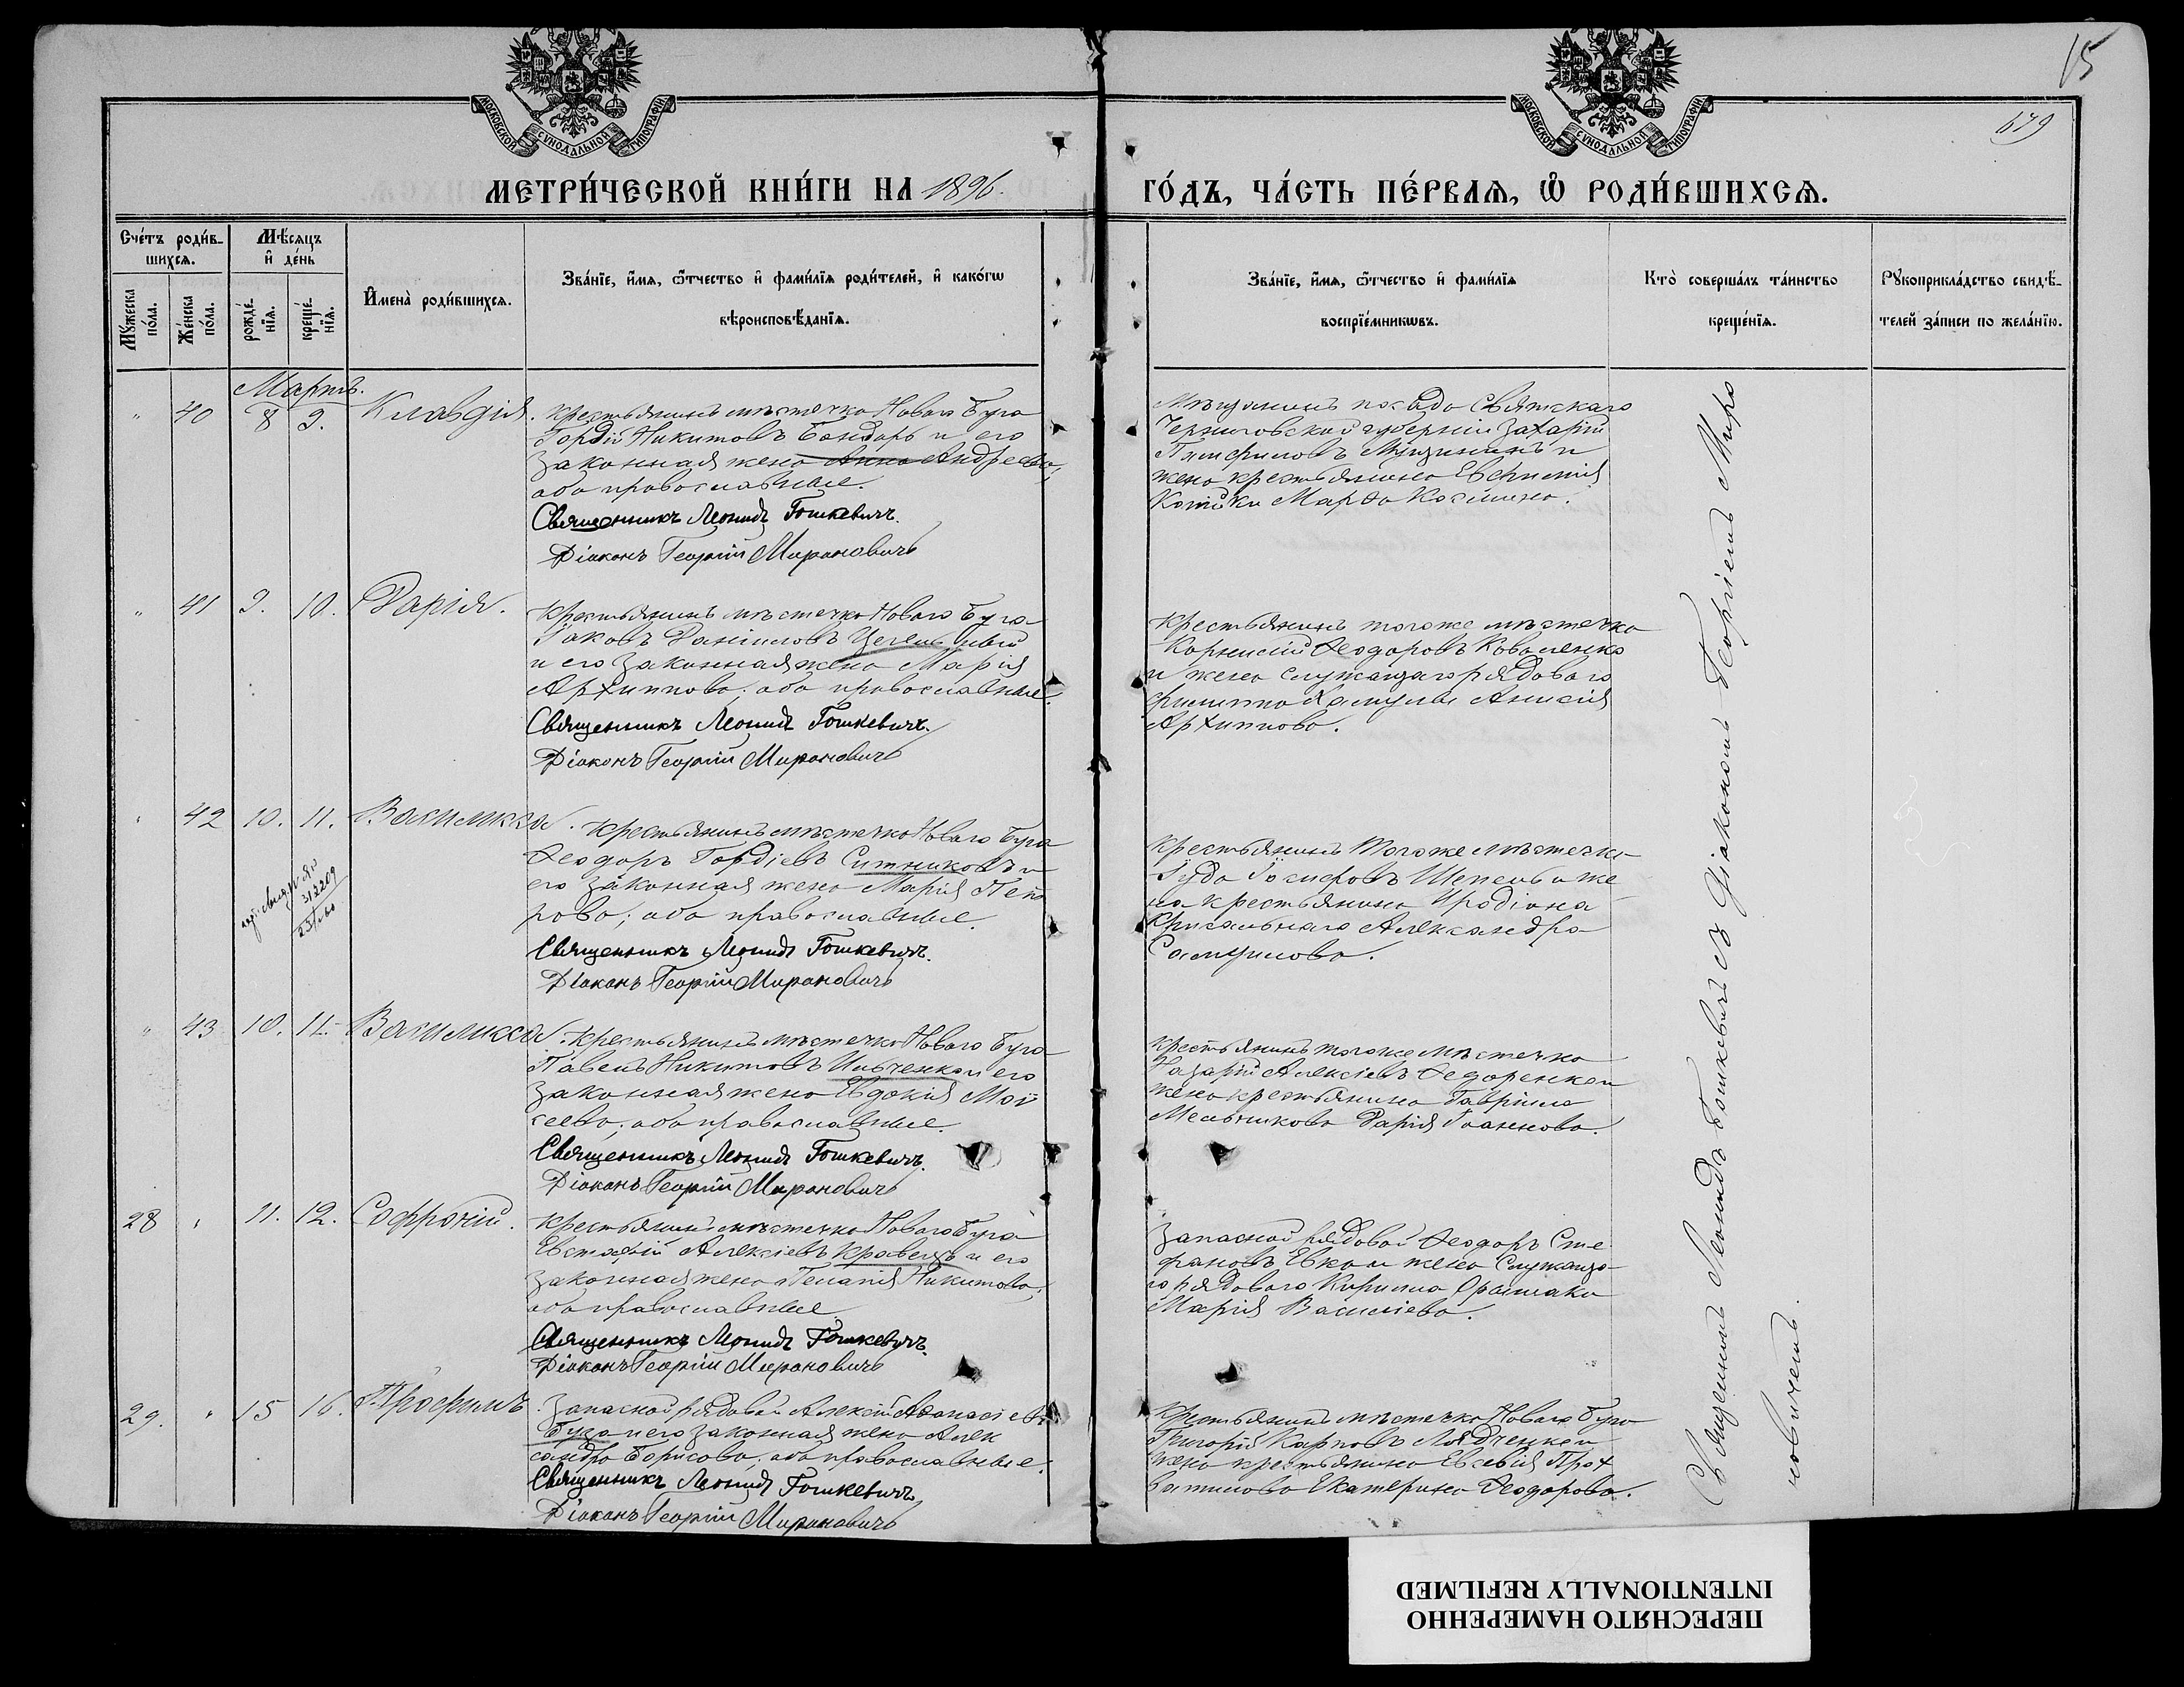 15
679
МОСКОВСКОЙ СѴНОДАЛЬНОЙ ТИПОГРАФІИ
МОСКОВСКОЙ СѴНОДАЛЬНОЙ ТИПОГРАФІИ
МЕТРИ́ЧЕСКОЙ КНИ́ГИ НА 1896. ГО́ДЪ, ЧА́СТЬ ПЕ́РВАѦ, Ѽ РОДИ́ВШИХСѦ.
Сче́тъ роди́в-
шихсѧ.
Мѣ́сѧцъ
и҆ де́нь
Мꙋ́жеска
по́ла.
Же́нска
по́ла.
рожде́-
нїѧ.
креще́-
нїѧ.
И҆мена̀ роди́вшихсѧ.
Зва́нїе, и҆́мѧ, ѻ҆́тчество и҆ фами́лїѧ роди́телей, и҆ како́гѡ
вѣроисповѣ́данїѧ.
Зва́нїе, и҆́мѧ, ѻ҆́тчество и҆ фами́лїѧ
воспрїе́мникѡвъ.
Кто̀ соверша́лъ та́инство
креще́нїѧ.
Рꙋкоприкла́дство свидѣ́-
телей за́писи по жела́нїю.
Мартъ.
" 40 8 9. Клавдія.
Крестьянинъ мѣстечка Новаго Буга
Гордій Никитовъ Бондарь и его
законная жена Анна Андреева;
оба православные.
Священникъ Леонидъ Гошкевичъ.
Діаконъ Георгій Мироновичъ
Мѣщанинъ посада Святскаго
Черниговской губерніи Захарій
Памфиловъ и
жена крестьянина Евфимія
Марѳа Косьмина.
" 41 9. 10. Дарія.
Крестьянинъ мѣстечка Новаго Буга
Іаковъ Даніиловъ
и его законная жена Марія
Архиппова; оба православные.
Священникъ Леонидъ Гошкевичъ.
Діаконъ Георгій Мироновичъ
Крестьянинъ тогоже мѣстечка
Корнилій Ѳеодоровъ Коваленко
и жена служащаго рядоваго
Филиппа Анисія
Архиппова.
" 42 10. 11. Василисса.
Крестьянинъ мѣстечка Новаго Буга
Ѳеодоръ Гордіевъ Ситниковъ и
его законная жена Марія Пет
рова; оба православные.
Священникъ Леонидъ Гошкевичъ.
Діаконъ Георгій Мироновичъ
Крестьянинъ тогоже мѣстечка
Іуда Іосифовъ Шепель и же
на крестьянина Иродіона
Александра
Самуилова.
" 43 10. 11. Василисса.
Крестьянинъ мѣстечка Новаго Буга
Павелъ Никитовъ Ильченко и его
законная жена Евдокія Мої
сеева; оба православные.
Священникъ Леонидъ Гошкевичъ.
Діаконъ Георгій Мироновичъ
Крестьянинъ тогоже мѣстечка
Назарій Алексіевъ Ѳедоренко и
жена крестьянина Гавріила
Мельникова Дарія Іоаннова.
28 " 11. 12. Софроній.
Крестьянинъ мѣстечка Новаго Буга
Евстафій Алексіевъ Кравецъ и его
законная жена Пелагія Никитова;
оба православные
Священникъ Леонидъ Гошкевичъ.
Діаконъ Георгій Мироновичъ
Запасной рядовой Ѳеодоръ Сте
фановъ и жена служаща-
го рядоваго Кирилла
Марія Василіева.
29. " 15 16. Трофимъ
Запасной рядовой Алексій Аѳанасіевъ
Буза и его законная жена Алек
сандра Борисова; оба православные.
Священникъ Леонидъ Гошкевичъ.
Діаконъ Георгій Мироновичъ
Крестьянинъ мѣстечка Новаго Буга
Григорій Карповъ и
жена крестьянина Евсевія
Екатерина Ѳеодорова.
Священникъ Леонидъ Гошкевичъ съ діакономъ Георгіемъ Миро
новичемъ.
ПЕРЕСНЯТО НАМЕРЕННО
INTENTIONALLY REFILMED